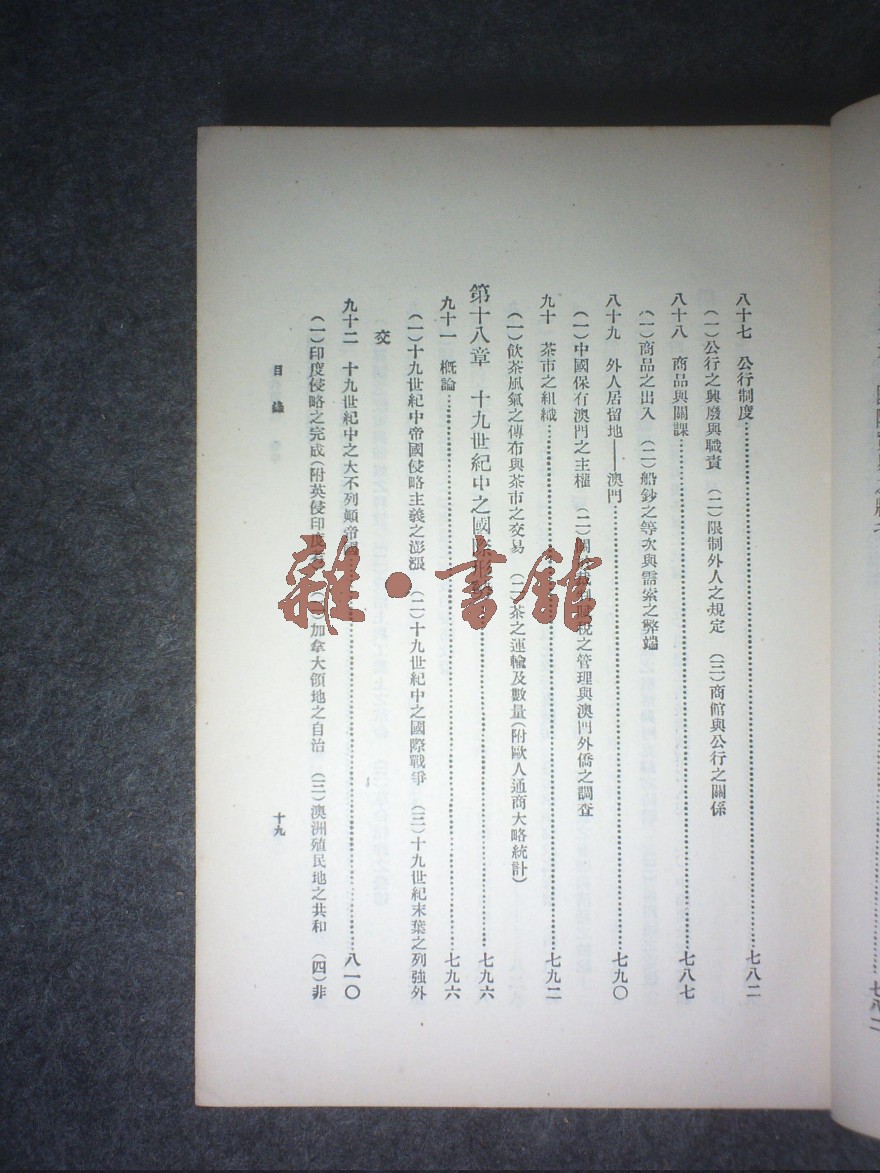 八十七　公行制度……七八二
（一）公行之興廢與職責　（二）限制外人之規定　（三）商館與公行之關係
八十八　商品與關課……七八七
（一）商品之出入　（二）船鈔之等次與需索之弊端
八十九　外人居留地——澳門……七九〇
（一）中國保有澳門之主權　（二）關稅之管理與澳門外僑之調查
九十　茶市之組織……七九二
（一）飲茶風氣之傳布與茶市之交易　（二）茶之運輸及數量（附歐人通商大略統計）
第十八章　十九世紀中之國際形……七九六
九十一　概論……七九六
（一）十九世紀中帝國侵略主義之澎漲　（二）十九世紀中之國際戰爭　（三）十九世紀末葉之列強外
交
九十二　十九世紀中之大不列顛帝國……八一〇
（一）印度侵略之完成（附英侵印度　加拿大領地之自治　（三）澳洲殖民地之共和　（四）非
目錄
十九
雜·書館